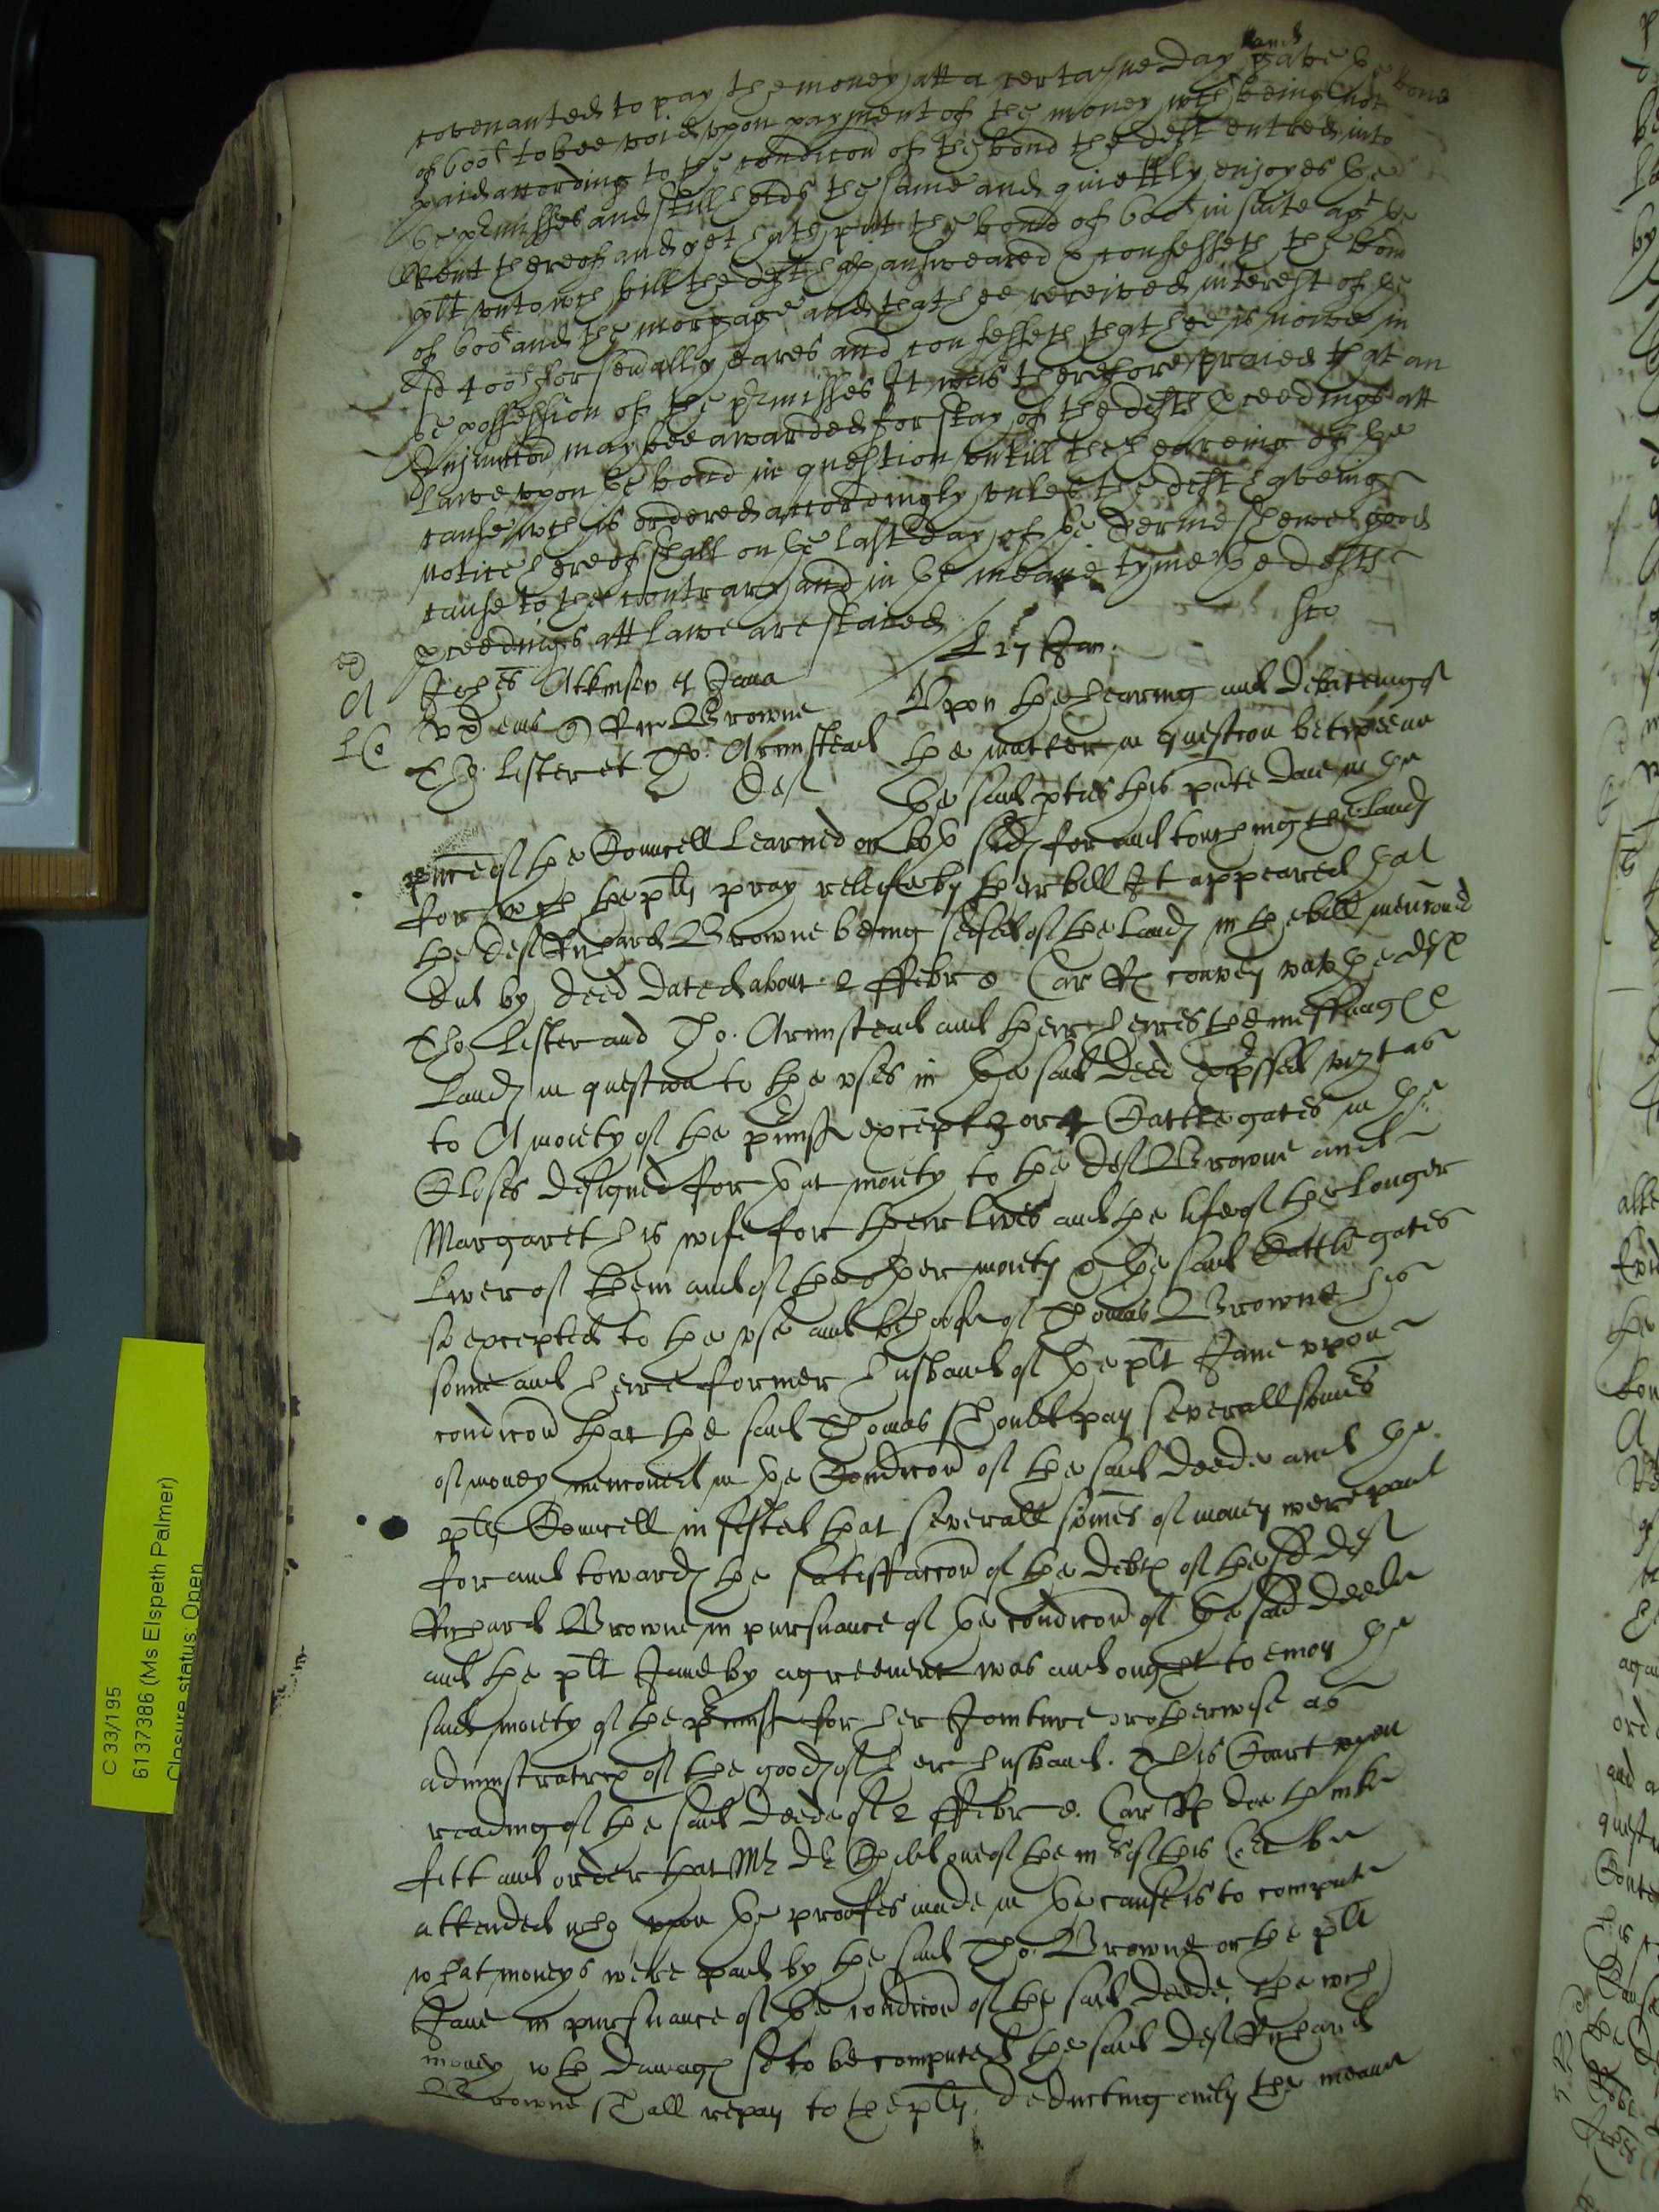 covenanted to pay the money att a certayne day and gave ye bond
of 600l to bee void upon payment of the money wch being not
paid according to the condicon of the bond the deft entred into
ye pmisses and still holds the same and quiettly enjoyes ye
Rent thereof and yet hath put the bond of 600l in suite agt ye
plt unto wch bill the deft hath answeared & confesseth the bond
of 600l and the morgage and that hee received interest of ye
sd 400l for seuall yeares and confesseth that hee is nowe in
ye possession of the pmisses It was therefore praied that an
Injunccon may bee awarded for stay of the defts pceedings att
Lawe upon ye bond in question untill the heareing of ye
cause wch is ordered accordingly unles the deft haveing
notice hereof shall on ye last day of ye Terme shewe good
cause to the contrary and in ye meane tyme ye defts
pceedings att Lawe are staied
27 Jan.
Johes Atkinson et Jana
Ux eius Ric Browne
Tho. Lister et Tho. Armistead
Def
Upon the hearing and debateing of
the matter in question betweene
the said pties this pnte daie in the
pnce of the Councell Learned on both sides for and touching the lands
for wch the plts pray releife by their bill It appeared that
the deft Richard Browne being seised of the lands in the bill mencoued
did by deed dated about 2 ffebr 8 Car Rx convey unto the deft
Tho Lister and Tho. Armistead and their heires the messuage &
lands in question to the uses in the said deed expssed vizt as
to A moiety of the pmiss except 3 or 4 Cattle gates in the
Closes designed for that moiety to the def Browne and
Margaret his wife for their lives and the life of the longer
liver of them and of the other moiety & the said Cattle gates
so excepted to the use and behoofe of Thomas Browne his
sonne and heire former husband of the plt Jane upon
condicon that the said Thomas should pay severall somes
of money mencoued in the Condicon of the said deede and the
plts Councell insisted that severall somes of money were paid
for and towards the satisfaccon of the debts of the sd def
Richard Browne in pursuance of the condicon of the said deede
and the plt Jane by agreement was and ought to enioy the
said moiety of the pmiss for her Jointure or otherwise as
administratrix of the goods of her husband. This Court upon
reading of the said deede of 2 ffebr 8. Car Rx doe thinke
fitt and order that Mr Dr Childe one of the mrs of this Ct be
attended who upon the proofes made in the cause is to compute
what moneys were paid by the said Tho. Browne or the plt
Jane in pursuance of the condicon of the said deede, the wch
money wth damages so to be computed the said def Richard
Browne shall repay to the plts deducting only the meane
C 33/195
6137386 (Ms Elspeth Palmer)
Closure status: Open